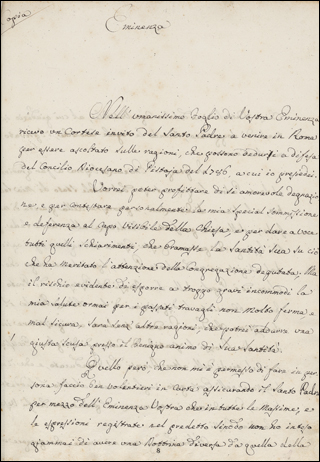 opia
Eminenza
Nell' umanissimo foglio di Vostra Eminenza
ricevo un Cortese invito del Santo Padre a venire in Roma
per essere ascoltato sulle ragioni, che possono dedursi a difesa
del Concilio Diocesano di Pistoja del 1786, a cui io presiedei.
Vorrei poter profittare di sì amorevole degnazio
ne, e per contestare personalmente la mia special Sommissione
e deferenza al Capo Visibile della Chiesa, e per dare a voce
tutti quelli schiarimenti, che bramasse la Santità Sua su ciò
che ha meritato l'attenzione della Congregazione deputata. Ma
il rischio evidente di esporre a troppo gravi incommodi la
mia salute ormai per i passati travagli non molto ferma, e
mal sicura, senza altre ragioni, che potrei addurre una
giusta scusa presso il benigno animo di Sua Santità.
Quello però, che non mi è permesso di fare in per
sona faccio ben volentieri in Carta assicurando il Santo Padre
per mezzo dell'Eminenza Vostra che in tutte le Massime, e
le espressioni registrate nel predetto Sinodo non ho inteso
giammai di avere una Dottrina diversa da quella della
8